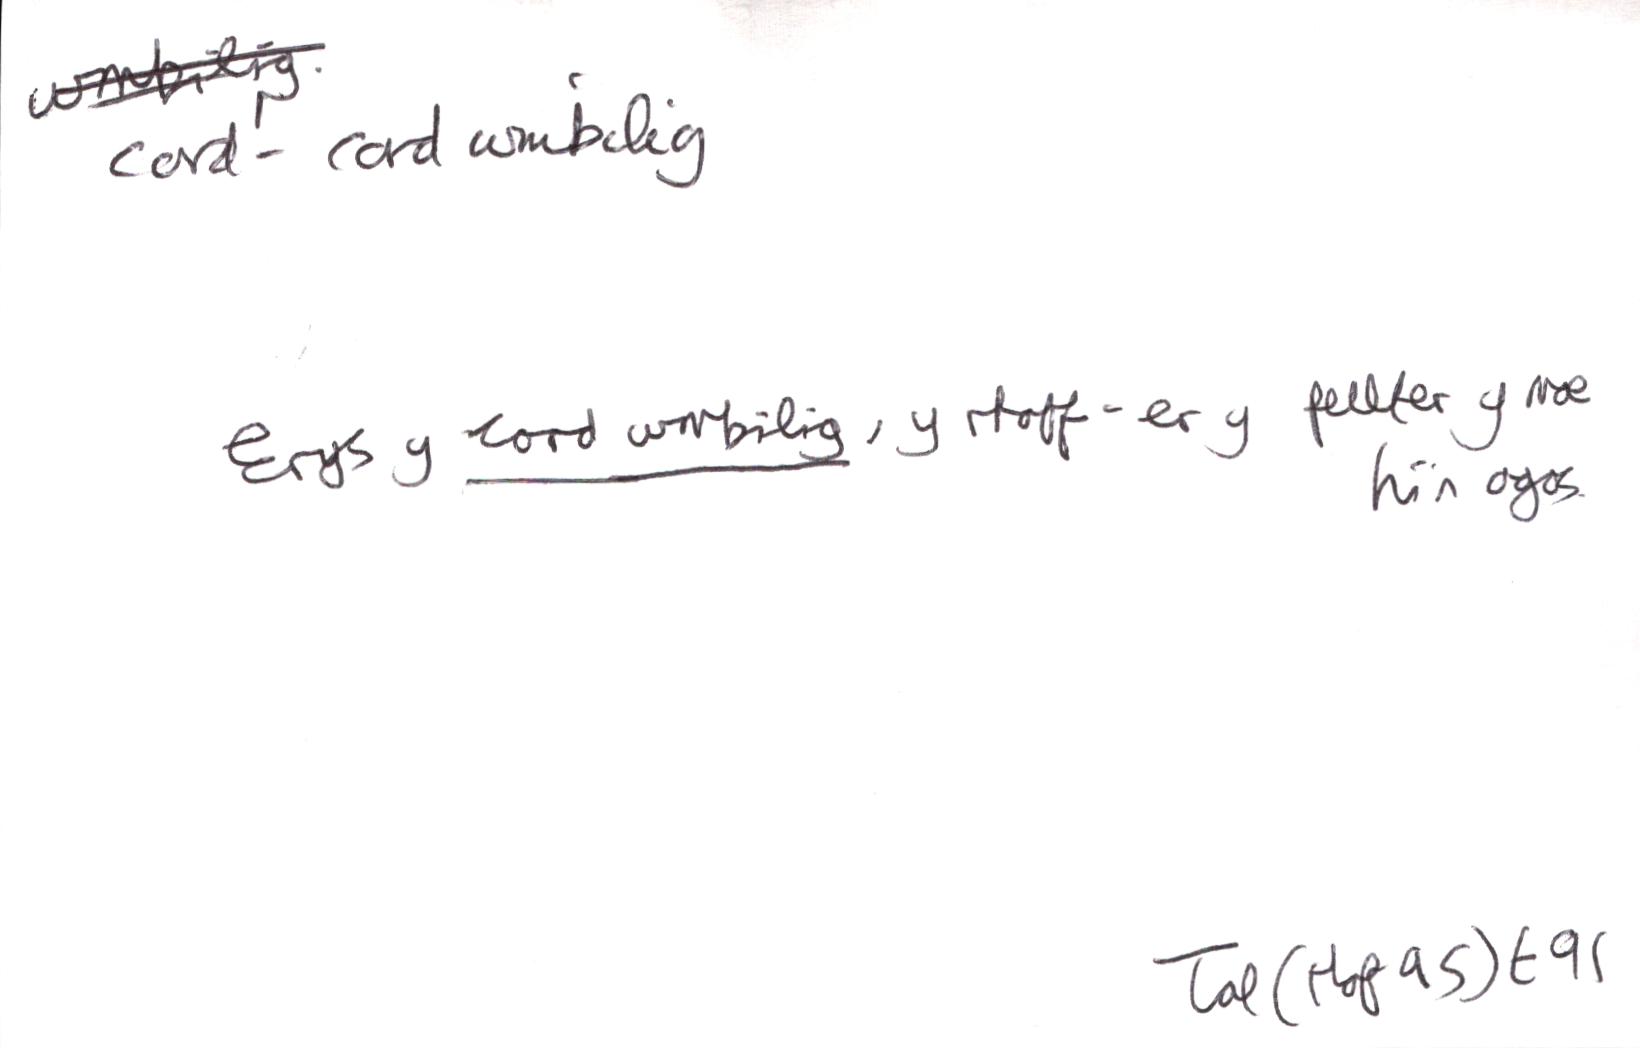 wmbilig.
cord¹ - cord wmbilig
Erys y cord wmbilig, y stoff - er y pellter y mae
hi'n agos.
Tal (Hyf 95) t 91